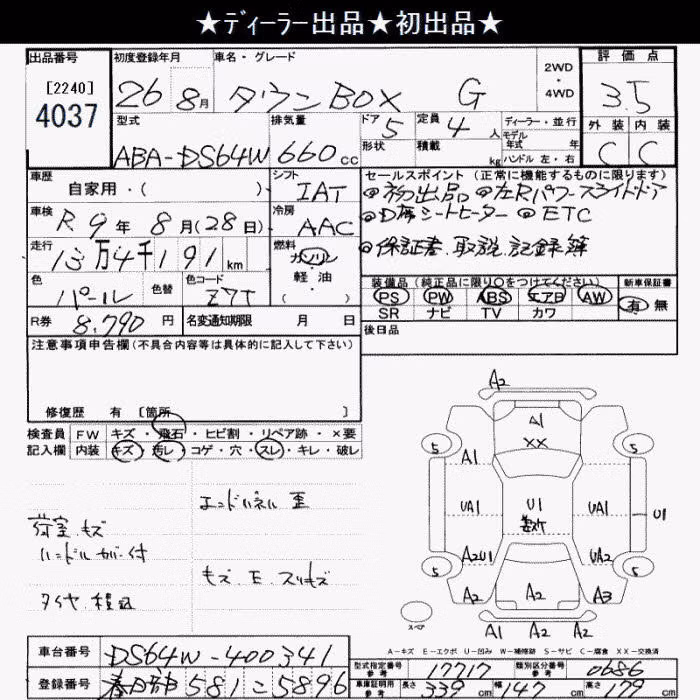 ★ディーラー出品★初出品★
出品番号 初度登録年月 車名・グレード 2WD・4WD 評価点
[2240] 4037 26年 8月 タウンBOX G 3.5
型式 排気量 ドア 定員 ディーラー・並行 外装 内装
ABA-DS64W 660cc 5 4人 モデル年式 年 C C
形状 積載 kg ハンドル 左・右
車歴 シフト セールスポイント (正常に機能するものに限ります)
自家用・( ) IAT ◎初出品 ◎左Rパワースライドドア
車検 冷房 ◎D席シートヒーター ◎ETC
R9年8月(28日) AAC ◎保証書.取説.記録簿
走行 燃料
13万4千191km ガソリン・軽・油
色 色替 色コード 装備品 (純正品に限り○をつけてください) 新車保証書
パール Z7T PS PW ABS エアB AW 有 無
SR ナビ TV カワ
R券 8,790円 名変通知期限 月 日 後日品
注意事項申告欄(不具合内容等は具体的に記入して下さい)
修復歴 有 [箇所 ]
検査員 FW キズ・飛石・ヒビ割・リペア跡・×要
記入欄 内装 キズ・汚レ・コゲ・穴・スレ・キレ・破レ
エンドパネル 歪
荷室.キズ
ハンドルカバー付
キズ.E.スリキズ
タイヤ.積込
A2
A1
XX
5 5
A1
UA1 U1 UA1 U1
A2U1 UA2
5 5
A2 A2 A3
スペア
A1 A2 A2
A－キズ E－エクボ U－凹み W－補修跡 S－サビ C－腐食 XX－交換済
車台番号 DS64W-400341 型式指定番号 参考 17717 類別区分番号 参考 0686
登録番号 春日部 581 こ 5896 車庫証明用 参考 長さ 339cm 幅 147cm 高さ cm